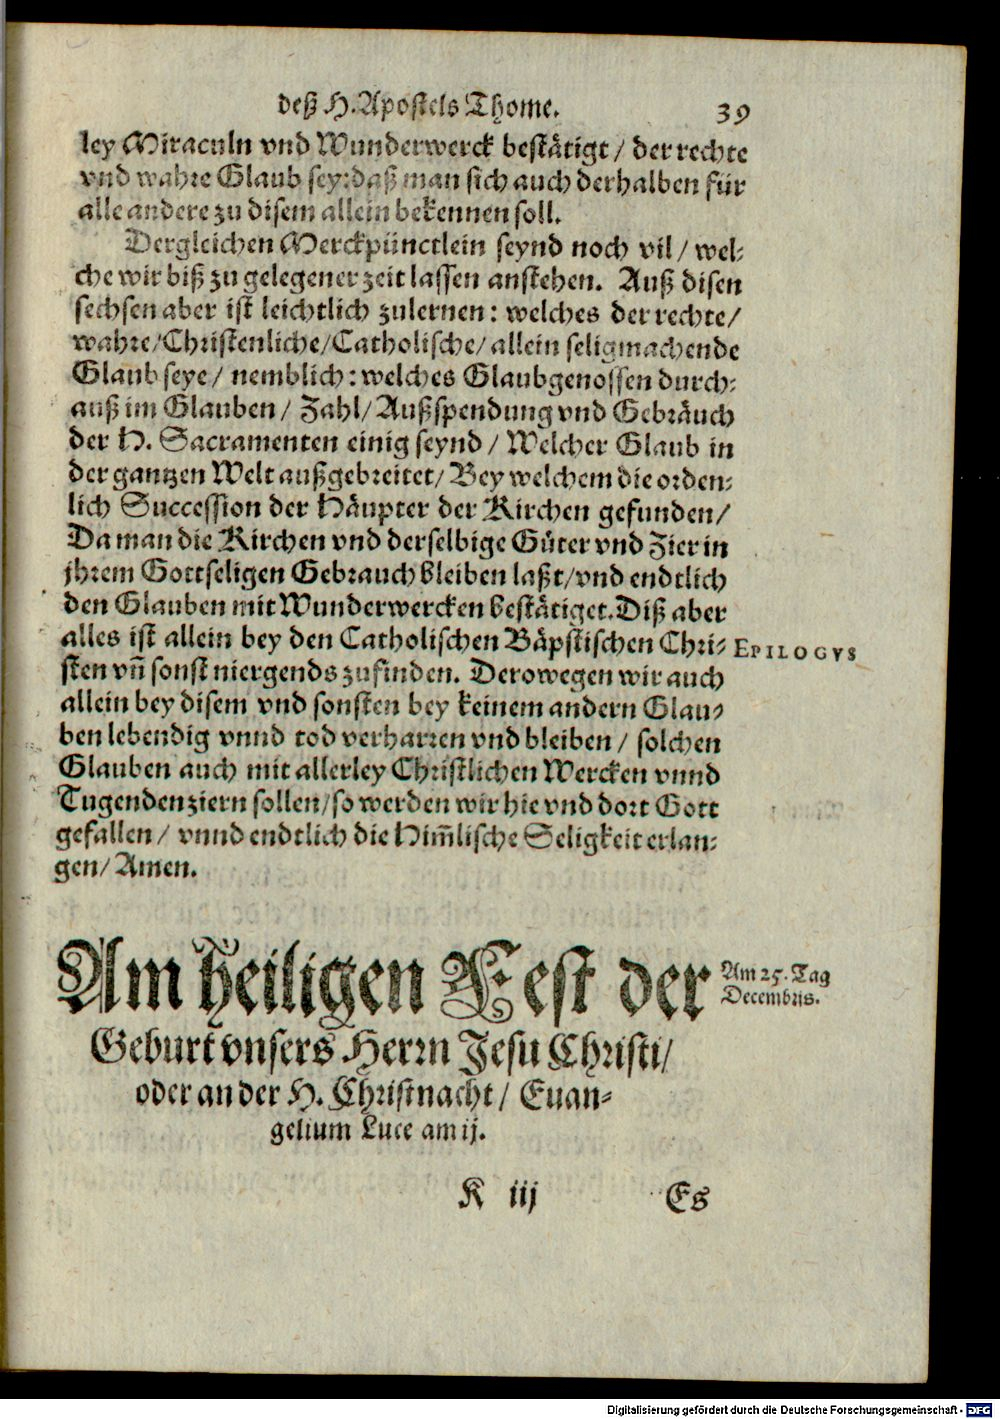 deß H. Apostels Thome. 39
ley Miraculn vnd Wunderwerck bestätigt / der rechte
vnd wahre Glaub sey: daß man sich auch derhalben für
alle andere zu disem allein bekennen soll.
Dergleichen Merckpünctlein seynd noch vil / wel-
che wir biß zu gelegener zeit lassen anstehen. Auß disen
sechsen aber ist leichtlich zulernen: welches der rechte/
wahre/Christenliche/Catholische/ allein seligmachende
Glaub seye / nemblich: welches Glaubgenossen durch-
auß im Glauben / Zahl / Außspendung vnd Gebräuch
der H. Sacramenten einig seynd / Welcher Glaub in
der gantzen Welt außgebreitet/ Bey welchem die orden-
lich Succession der Häupter der Kirchen gefunden/
Da man die Kirchen vnd derselbige Güter vnd Zier in
jhrem Gottseligen Gebrauch bleiben laßt/vnd endtlich
den Glauben mit Wunderwercken bestätiget. Diß aber
alles ist allein bey den Catholischen Bäpstischen Chri-
EPILOGVS
sten vñ sonst niergends zufinden. Derowegen wir auch
allein bey disem vnd sonsten bey keinem andern Glau-
ben lebendig vnnd tod verharren vnd bleiben / solchen
Glauben auch mit allerley Christlichen Wercken vnnd
Tugenden ziern sollen/so werden wir hie vnd dort Gott
gefallen / vnnd endtlich die Him̃lische Seligkeit erlan-
gen/ Amen.
Am heiligen Fest der
Am 25. Tag
Decembris.
Geburt vnsers Herrn Jesu Christi/
oder an der H. Christnacht / Euan-
gelium Luce am ij.
K iij Es
Digitalisierung gefördert durch die Deutsche Forschungsgemeinschaft - DFG